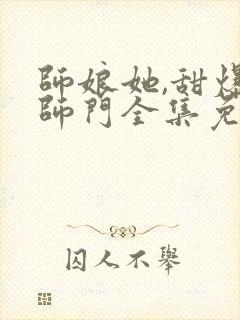 師娘她,甜爆
師門全集免
囚人不舉